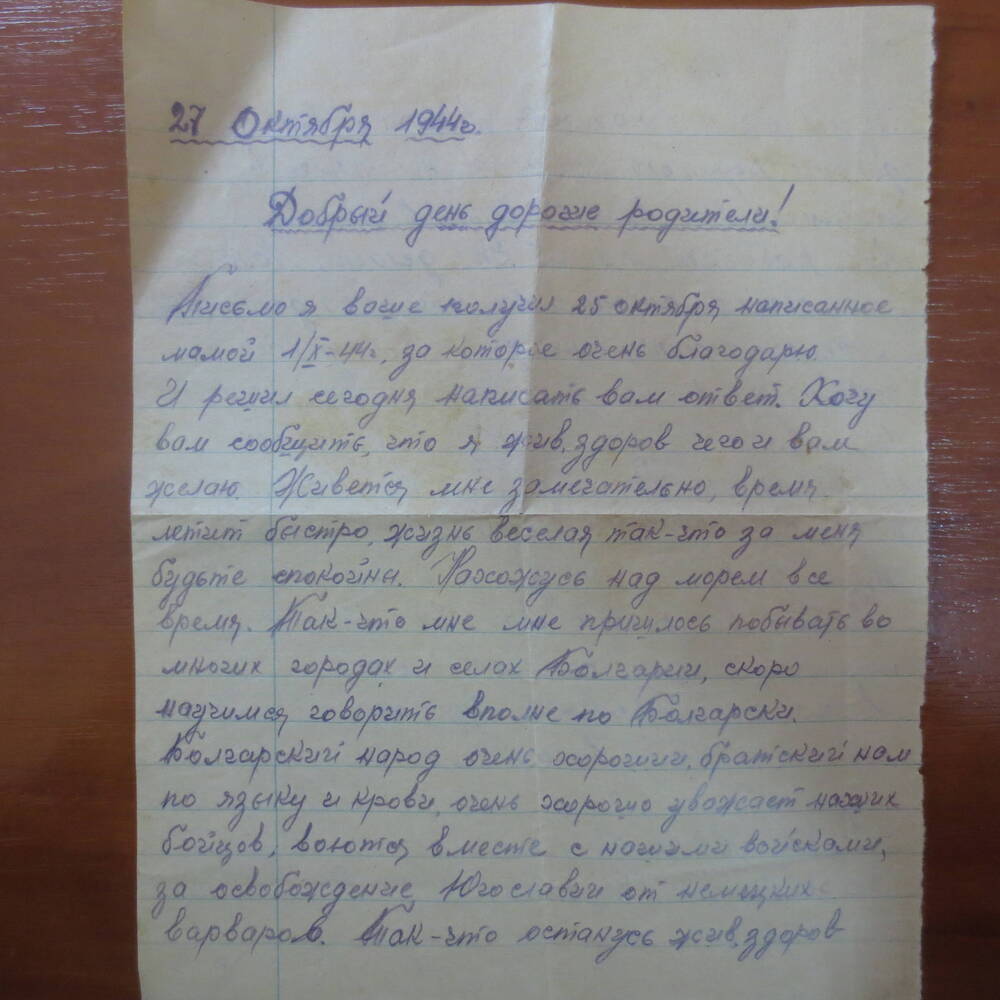 27 Октября 1944г.
Добрый день дорогие родители!
Письмо я ваше получил 25 октября написанное
мамой 1/X-44г., за которое очень благодарю.
И решил сегодня написать вам ответ. Хочу
вам сообщить, что я жив, здоров чего и вам
желаю. Живется мне замечательно, время
летит быстро, жизнь веселая так-что за меня
будьте спокойны. Нахожусь над морем все
время. Так-что мне мне пришлось побывать во
многих городах и селах Болгарии, скоро
научимся говорить вполне по Болгарски.
Болгарский народ очень хороший, братский нам
по языку и крови, очень хорошо уважает наших
бойцов, воются вместе с нашими войсками,
за освобождение Югославии от немецких
варваров. Так-что останусь жив, здоров